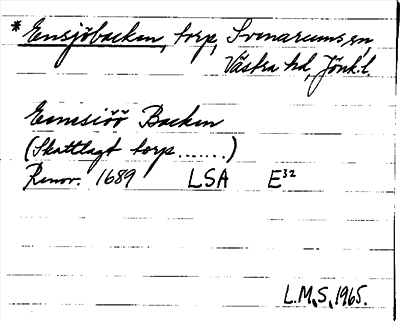 * Ensjöbacken, torp, Svenarums sn,
Västra hd, Jönk. l.
Ennsiöö Backen
(Skattlagt torp......)
Renov. 1689 LSA E³²
L.M.S, 1965.